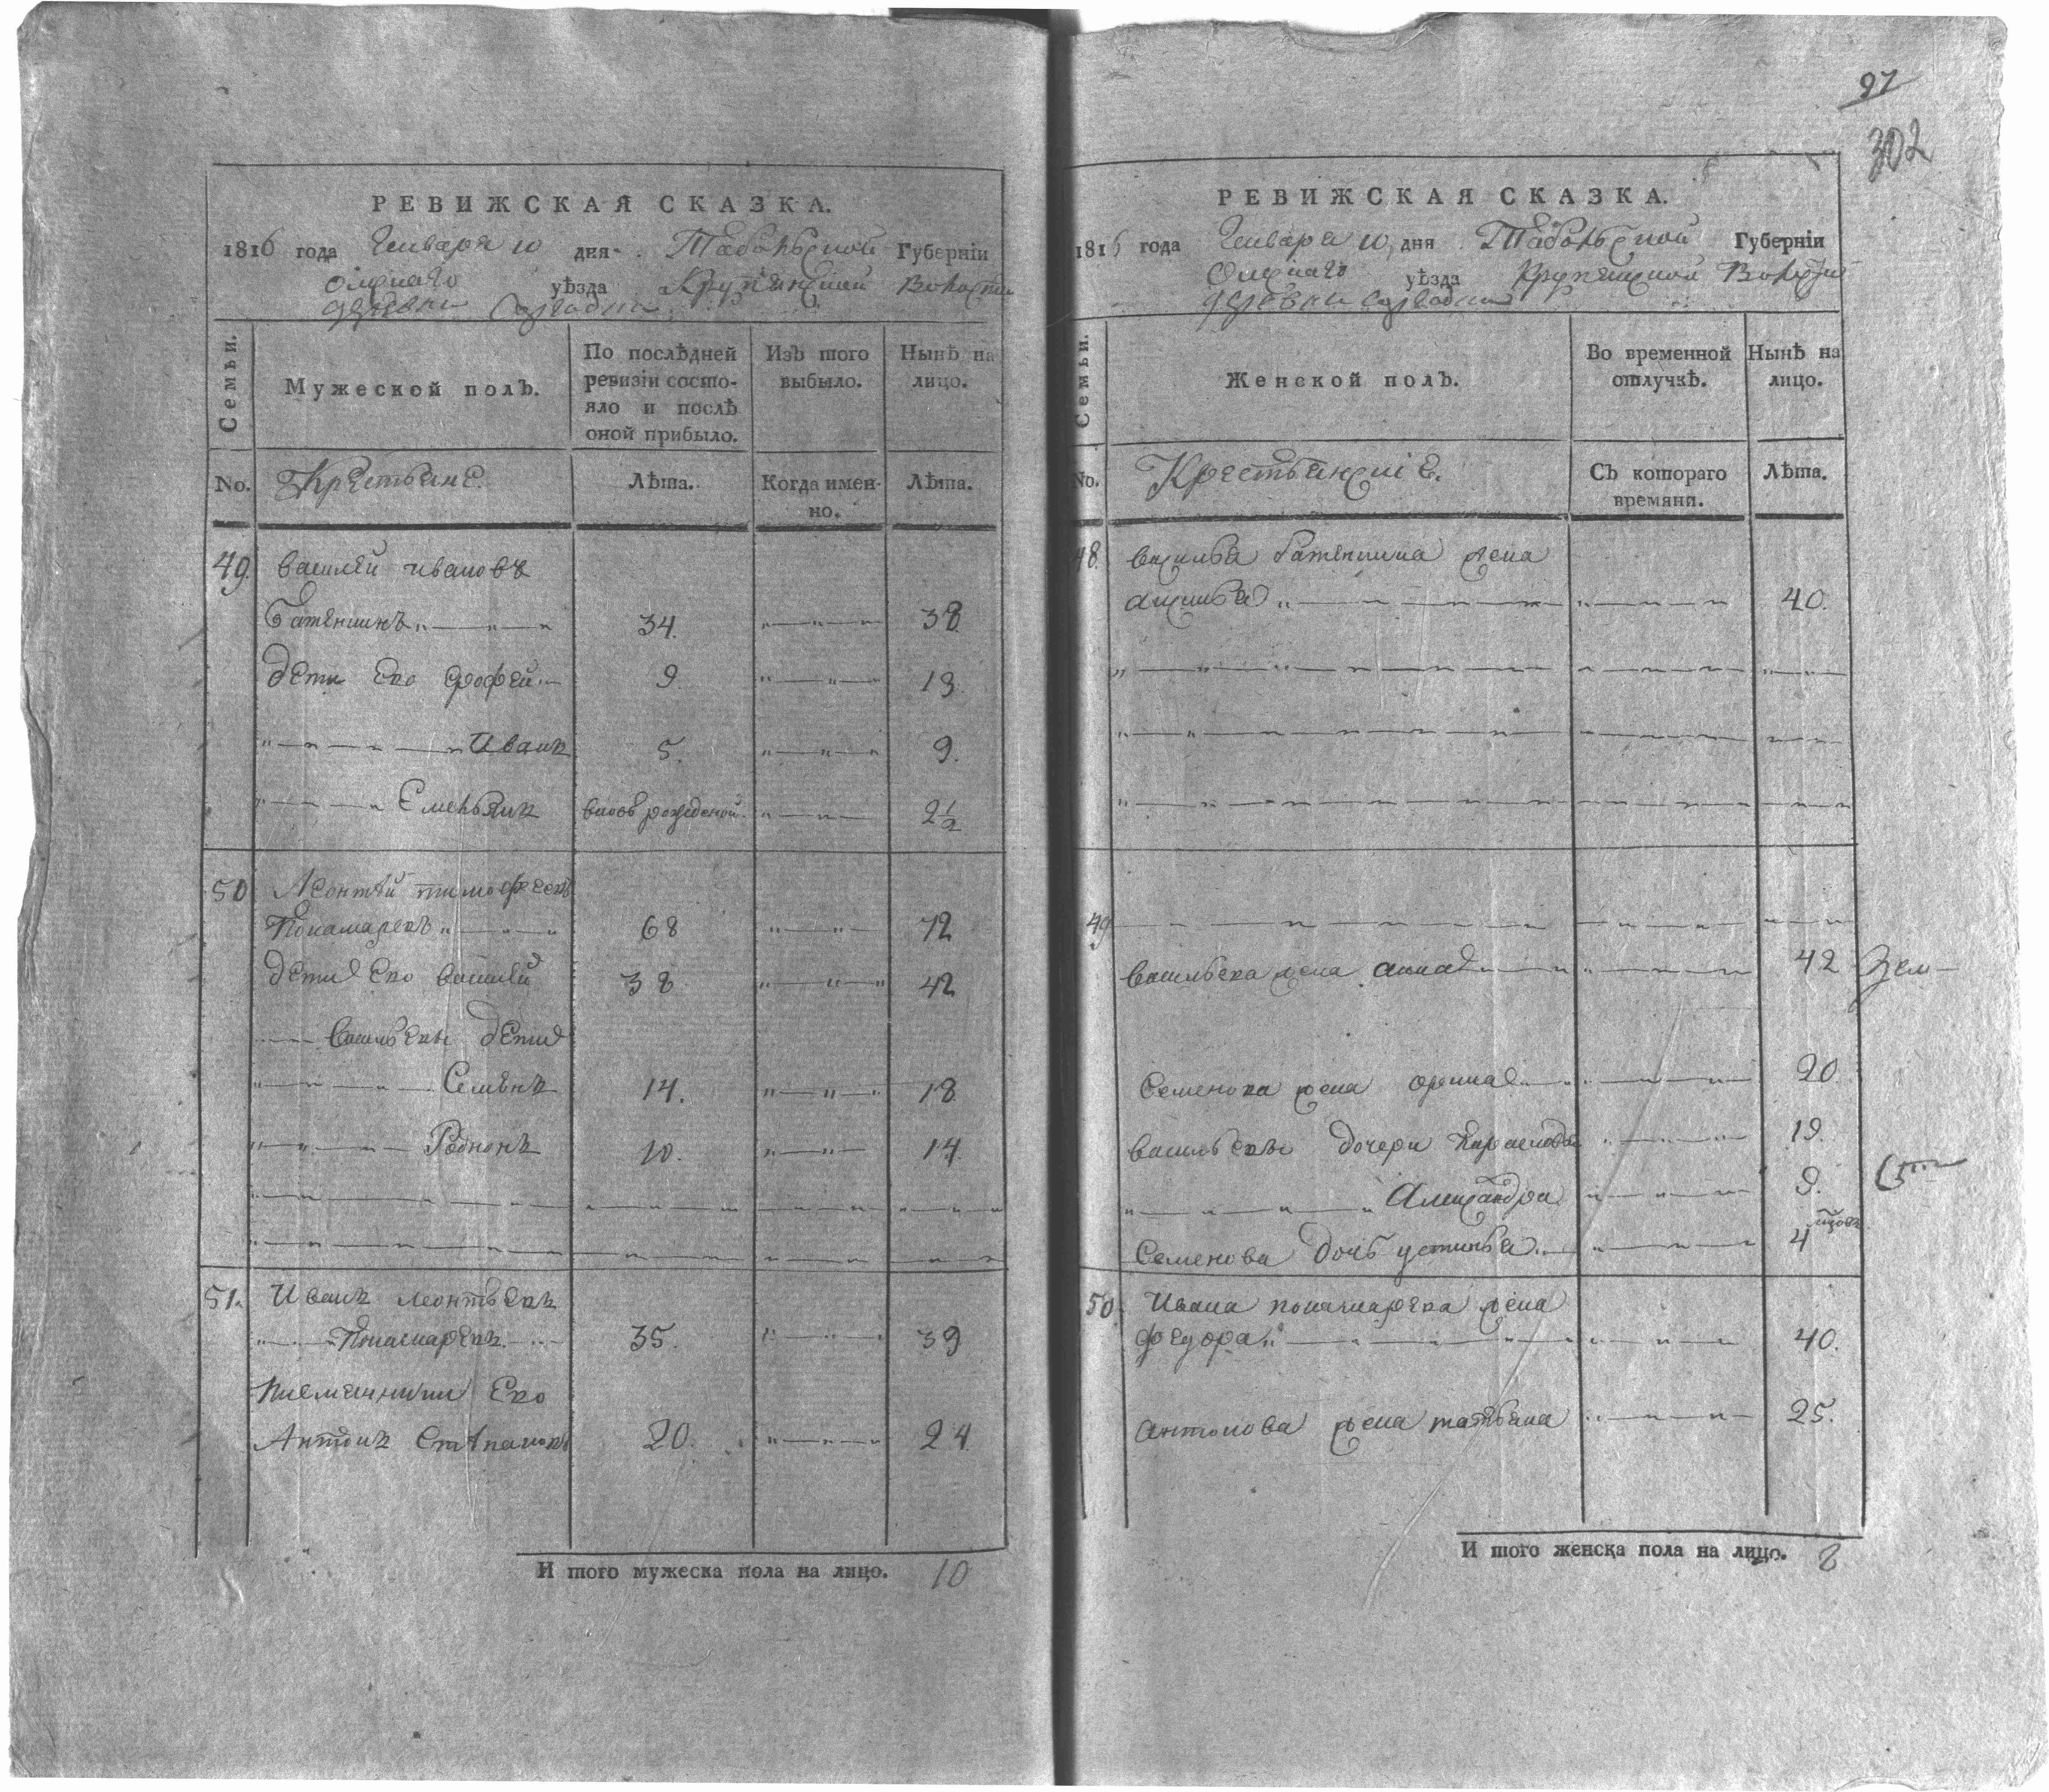 РЕВИЖСКАЯ СКАЗКА.
1816 года Генваря 10 дня Табольской Губерніи
Омскаго уѣзда Крупянской Волости
деревни
Семьи.
Мужеской полъ.
По послѣдней ревизіи состояло и послѣ оной прибыло.
Изъ того выбыло.
Нынѣ на лицо.
No. Крестьяне. Лѣта. Когда именно. Лѣта.
49. Василей Ивановъ
Батенинъ 34. 38.
дети Ево Ерофей 9. 13.
Иванъ 5. 9.
Емельянъ вновь рожденой 2 1/2
50 Леонтей тимофеевъ
Понамаревъ 68 72
дети Ево василей 38 42
Васильевы дети
Семенъ 14. 18.
Родионъ 10. 14.
51. Иванъ леонтьевъ
Понамаревъ 35. 39
племянники Ево
Антонъ Степановъ 20. 24.
И того мужеска пола на лицо. 10
97
302
РЕВИЖСКАЯ СКАЗКА.
1816 года Генваря 10 дня Табольской Губерніи
Омскаго уѣзда Крупянской Волости
деревни
Семьи.
Женской полъ.
Во временной отлучкѣ.
Нынѣ на лицо.
No. Крестьянскіе. Съ котораго времяни. Лѣта.
48. Василья Батенина жена
40.
49
Васильева жена анна 42
Семенова жена орина 20.
Васильевы дочери 19.
Александра 9.
Семенова дочь устинья 4
50. Ивана понамарева жена
федора 40.
антонова жена татьяна 25.
И того женска пола на лицо. 8